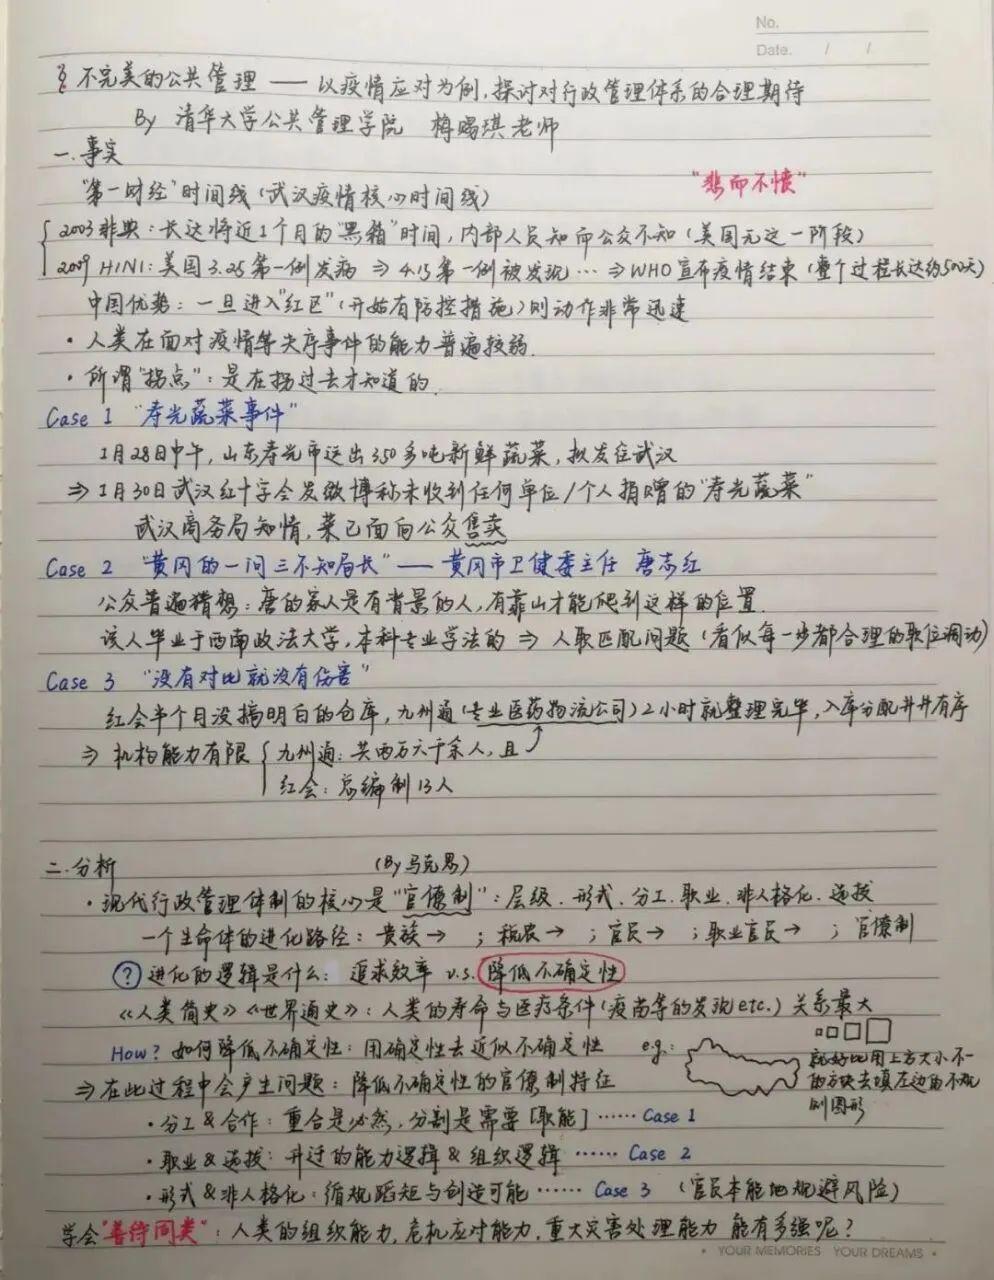 No.
Date. / /
§ 不完美的公共管理 —— 以疫情应对为例,探讨对行政管理体系的合理期待
By 清华大学公共管理学院 梅赐琪老师
一.事实
"第一财经"时间线(武汉疫情核心时间线) "悲而不愤"
2003 非典:长达将近1个月的"黑箱"时间,内部人员知而公众不知(美国无这一阶段)
2009 H1N1:美国 3.28 第一例发病 ⇒ 4.15 第一例被发现 … ⇒ WHO 宣布疫情结束(整个过程长达约500天)
中国优势:一旦进入"红区"(开始有防控措施)则动作非常迅速
· 人类在面对疫情等失序事件的能力普遍较弱.
· 所谓"拐点":是在拐过去才知道的.
Case 1 "寿光蔬菜事件"
1月28日中午,山东寿光市运出350多吨新鲜蔬菜,拟发往武汉
⇒ 1月30日武汉红十字会发微博称未收到任何单位/个人捐赠的"寿光蔬菜"
武汉商务局知情,菜已面向公众售卖
Case 2 "黄冈的一问三不知局长" —— 黄冈市卫健委主任 唐志红
公众普遍猜想:唐的家人是有背景的人,有靠山才能爬到这样的位置.
该人毕业于西南政法大学,本科专业学法的 ⇒ 人职匹配问题(看似每一步都合理的职位调动)
Case 3 "没有对比就没有伤害"
红会半个月没搞明白的仓库,九州通(专业医药物流公司)2小时就整理完毕,入库分配井井有序
⇒ 机构能力有限 九州通:共两万六千余人,且
红会:总编制13人
二.分析 (By马克思)
· 现代行政管理体制的核心是"官僚制":层级.形式.分工.职业.非人格化.选拔
一个生命体的进化路径:贵族→ ;税农→ ;官民→ ;职业官民→ ;官僚制
? 进化的逻辑是什么:追求效率 v.s. 降低不确定性
《人类简史》《世界通史》:人类的寿命与医疗条件(疫苗等的发现etc.)关系最大
How? 如何降低不确定性:用确定性去近似不确定性 e.g.:
就好比用上方大小不一
的方块去填左边的不规
则图形
⇒ 在此过程中会产生问题:降低不确定性的官僚制特征
· 分工 & 合作:重合是必然,分割是需要[职能] …… Case 1
· 职业 & 选拔:升迁的能力逻辑 & 组织逻辑 …… Case 2
· 形式 & 非人格化:循规蹈矩与创造可能 …… Case 3 (官员本能地规避风险)
学会"善待同类":人类的组织能力,危机应对能力,重大灾害处理能力 能有多强呢?
· YOUR MEMORIES YOUR DREAMS ·